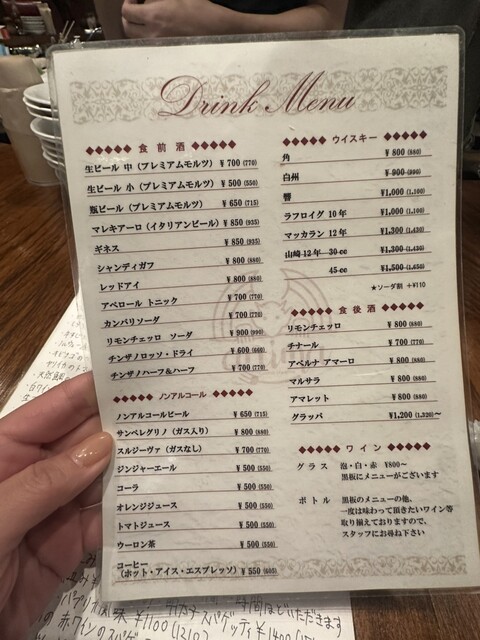 Drink Menu
◆◆◆◆◆ 食前酒 ◆◆◆◆◆
生ビール 中（プレミアムモルツ） ¥700 (770)
生ビール 小（プレミアムモルツ） ¥500 (550)
瓶ビール（プレミアムモルツ） ¥650 (715)
マレキアーロ（イタリアンビール） ¥850 (935)
ギネス ¥850 (935)
シャンディガフ ¥800 (880)
レッドアイ ¥800 (880)
アペロール トニック ¥700 (770)
カンパリソーダ ¥700 (770)
リモンチェッロ ソーダ ¥900 (990)
チンザノロッソ・ドライ ¥600 (660)
チンザノハーフ&ハーフ ¥700 (770)
◆◆◆◆◆ ノンアルコール ◆◆◆◆◆
ノンアルコールビール ¥650 (715)
サンペレグリノ（ガス入り） ¥800 (880)
スルジーヴァ（ガスなし） ¥700 (770)
ジンジャーエール ¥500 (550)
コーラ ¥500 (550)
オレンジジュース ¥500 (550)
トマトジュース ¥500 (550)
ウーロン茶 ¥500 (550)
コーヒー
（ホット・アイス・エスプレッソ） ¥550 (605)
◆◆◆◆◆ ウイスキー ◆◆◆◆◆
角 ¥800 (880)
白州 ¥900 (990)
響 ¥1,000 (1,100)
ラフロイグ 10年 ¥1,000 (1,100)
マッカラン 12年 ¥1,300 (1,430)
山崎 12年 30cc ¥1,300 (1,430)
45cc ¥1,500 (1,650)
★ソーダ割 +¥110
◆◆◆◆◆ 食後酒 ◆◆◆◆◆
リモンチェッロ ¥800 (880)
チナール ¥700 (770)
アベルナ アマーロ ¥800 (880)
マルサラ ¥800 (880)
アマレット ¥800 (880)
グラッパ ¥1,200 (1,320)～
◆◆◆◆◆ ワイン ◆◆◆◆◆
グラス 泡・白・赤 ¥800～
黒板にメニューがございます
ボトル 黒板のメニューの他、
一度は味わって頂きたいワイン等
取り揃えておりますので、
スタッフにお尋ね下さい